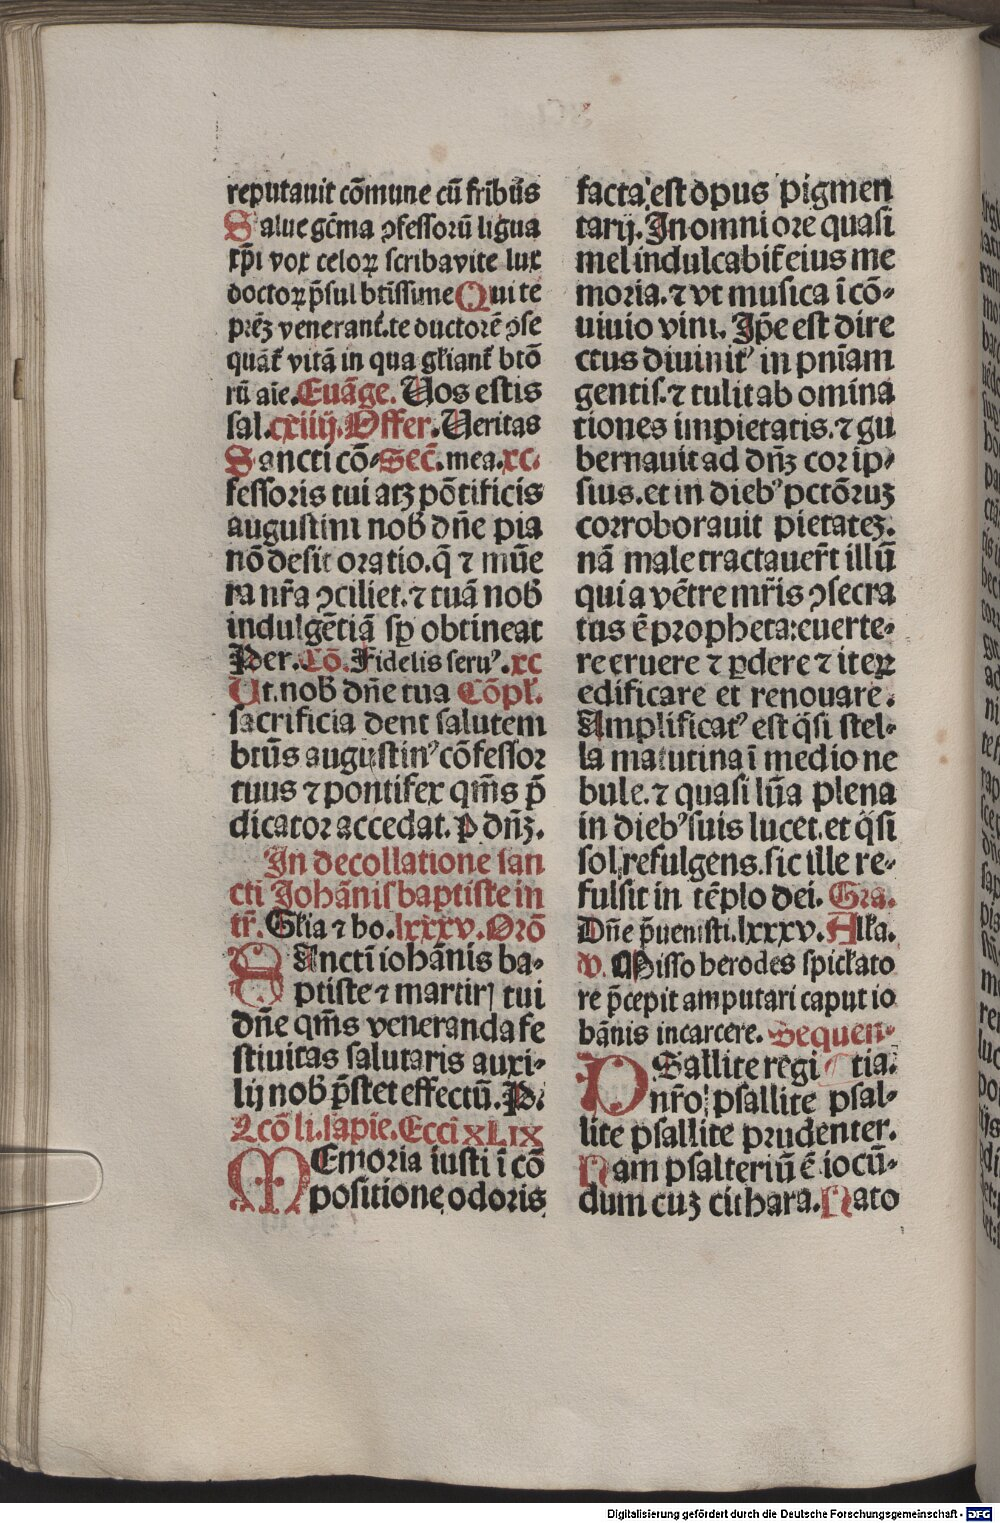 reputauit cōmune cū fribus
Salue gēma ꝯfessorū ligua
xp̄i vox celoꝝ scriba vite lux
doctoꝝ p̄sul btīssime Qui te
prēz venerant᷑.te ductorē ꝯse
quāt᷑ vitā in qua gl̄iant᷑ btō
rū aīe.Euāge. Uos estis
sal.cxiiij.Offer.Veritas
Sancti cō⸗ Sec̄.mea.xc.
fessoris tui atꝫ pōtificis
augustini nob̄ dn̄e pia
nō desit oratio.q̄ ⁊ mūe
ra nr̄a ꝯciliet.⁊ tuā nob̄
indulgētiā sp̄ obtineat
Per.Cō.Fidelis seruꝰ.xc
Ut.nob̄ dn̄e tua Cōpl̄.
sacrificia dent salutem
btūs augustinꝰ cōfessor
tuus ⁊ pontifex qm̄s p̄
dicator accedat.ꝑ dn̄ꝫ.
In decollatione san
cti Johānis baptiste in
tr̄.Gl̄ia ⁊ ho.lxxxv.Orō
SAncti iohānis ba⸗
ptiste ⁊ martirꝭ tui
dn̄e qm̄s veneranda fe
stiuitas salutaris auxi⸗
lij nob̄ p̄stet effectū.P.
Lcō li.sapīe.Ecci xLIX
MEmoria iusti ī cō
positione odoris
facta est opus pigmen
tarij.In omni ore quasi
mel indulcabit᷑ eius me
moria.⁊ vt musica ī cō⸗
uiuio vini. Ip̄e est dire
ctus diuinitꝰ in pn̄iam
gentis.⁊ tulit ab omina
tiones impietatis.⁊ gu
bernauit ad dn̄ꝫ cor ip⸗
sius.et in diebꝰ pctōruꝫ
corroborauit pietateꝫ.
nā male tractauer̄t illū
qui a vētre mr̄is ꝯsecra
tus ē propheta:euerte⸗
re eruere ⁊ ꝑdere ⁊ iteꝝ
edificare et renouare.
Amplificatꝰ est q̄si stel⸗
la matutina ī medio ne
bule.⁊ quasi lūa plena
in diebꝰ suis lucet.et q̄si
sol refulgens.sic ille re⸗
fulsit in tēplo dei. Gra.
Dn̄e p̄uenisti.lxxxv.Alka.
v. Misso herodes spicl̄ato
re p̄cepit amputari caput io
hānis in carcere. Sequen⸗
PSallite regi tia.
nr̄o psallite psal⸗
lite psallite prudenter.
Nam psalteriū ē iocū⸗
dum cuꝫ cithara.Nato
Digitalisierung gefördert durch die Deutsche Forschungsgemeinschaft - DFG